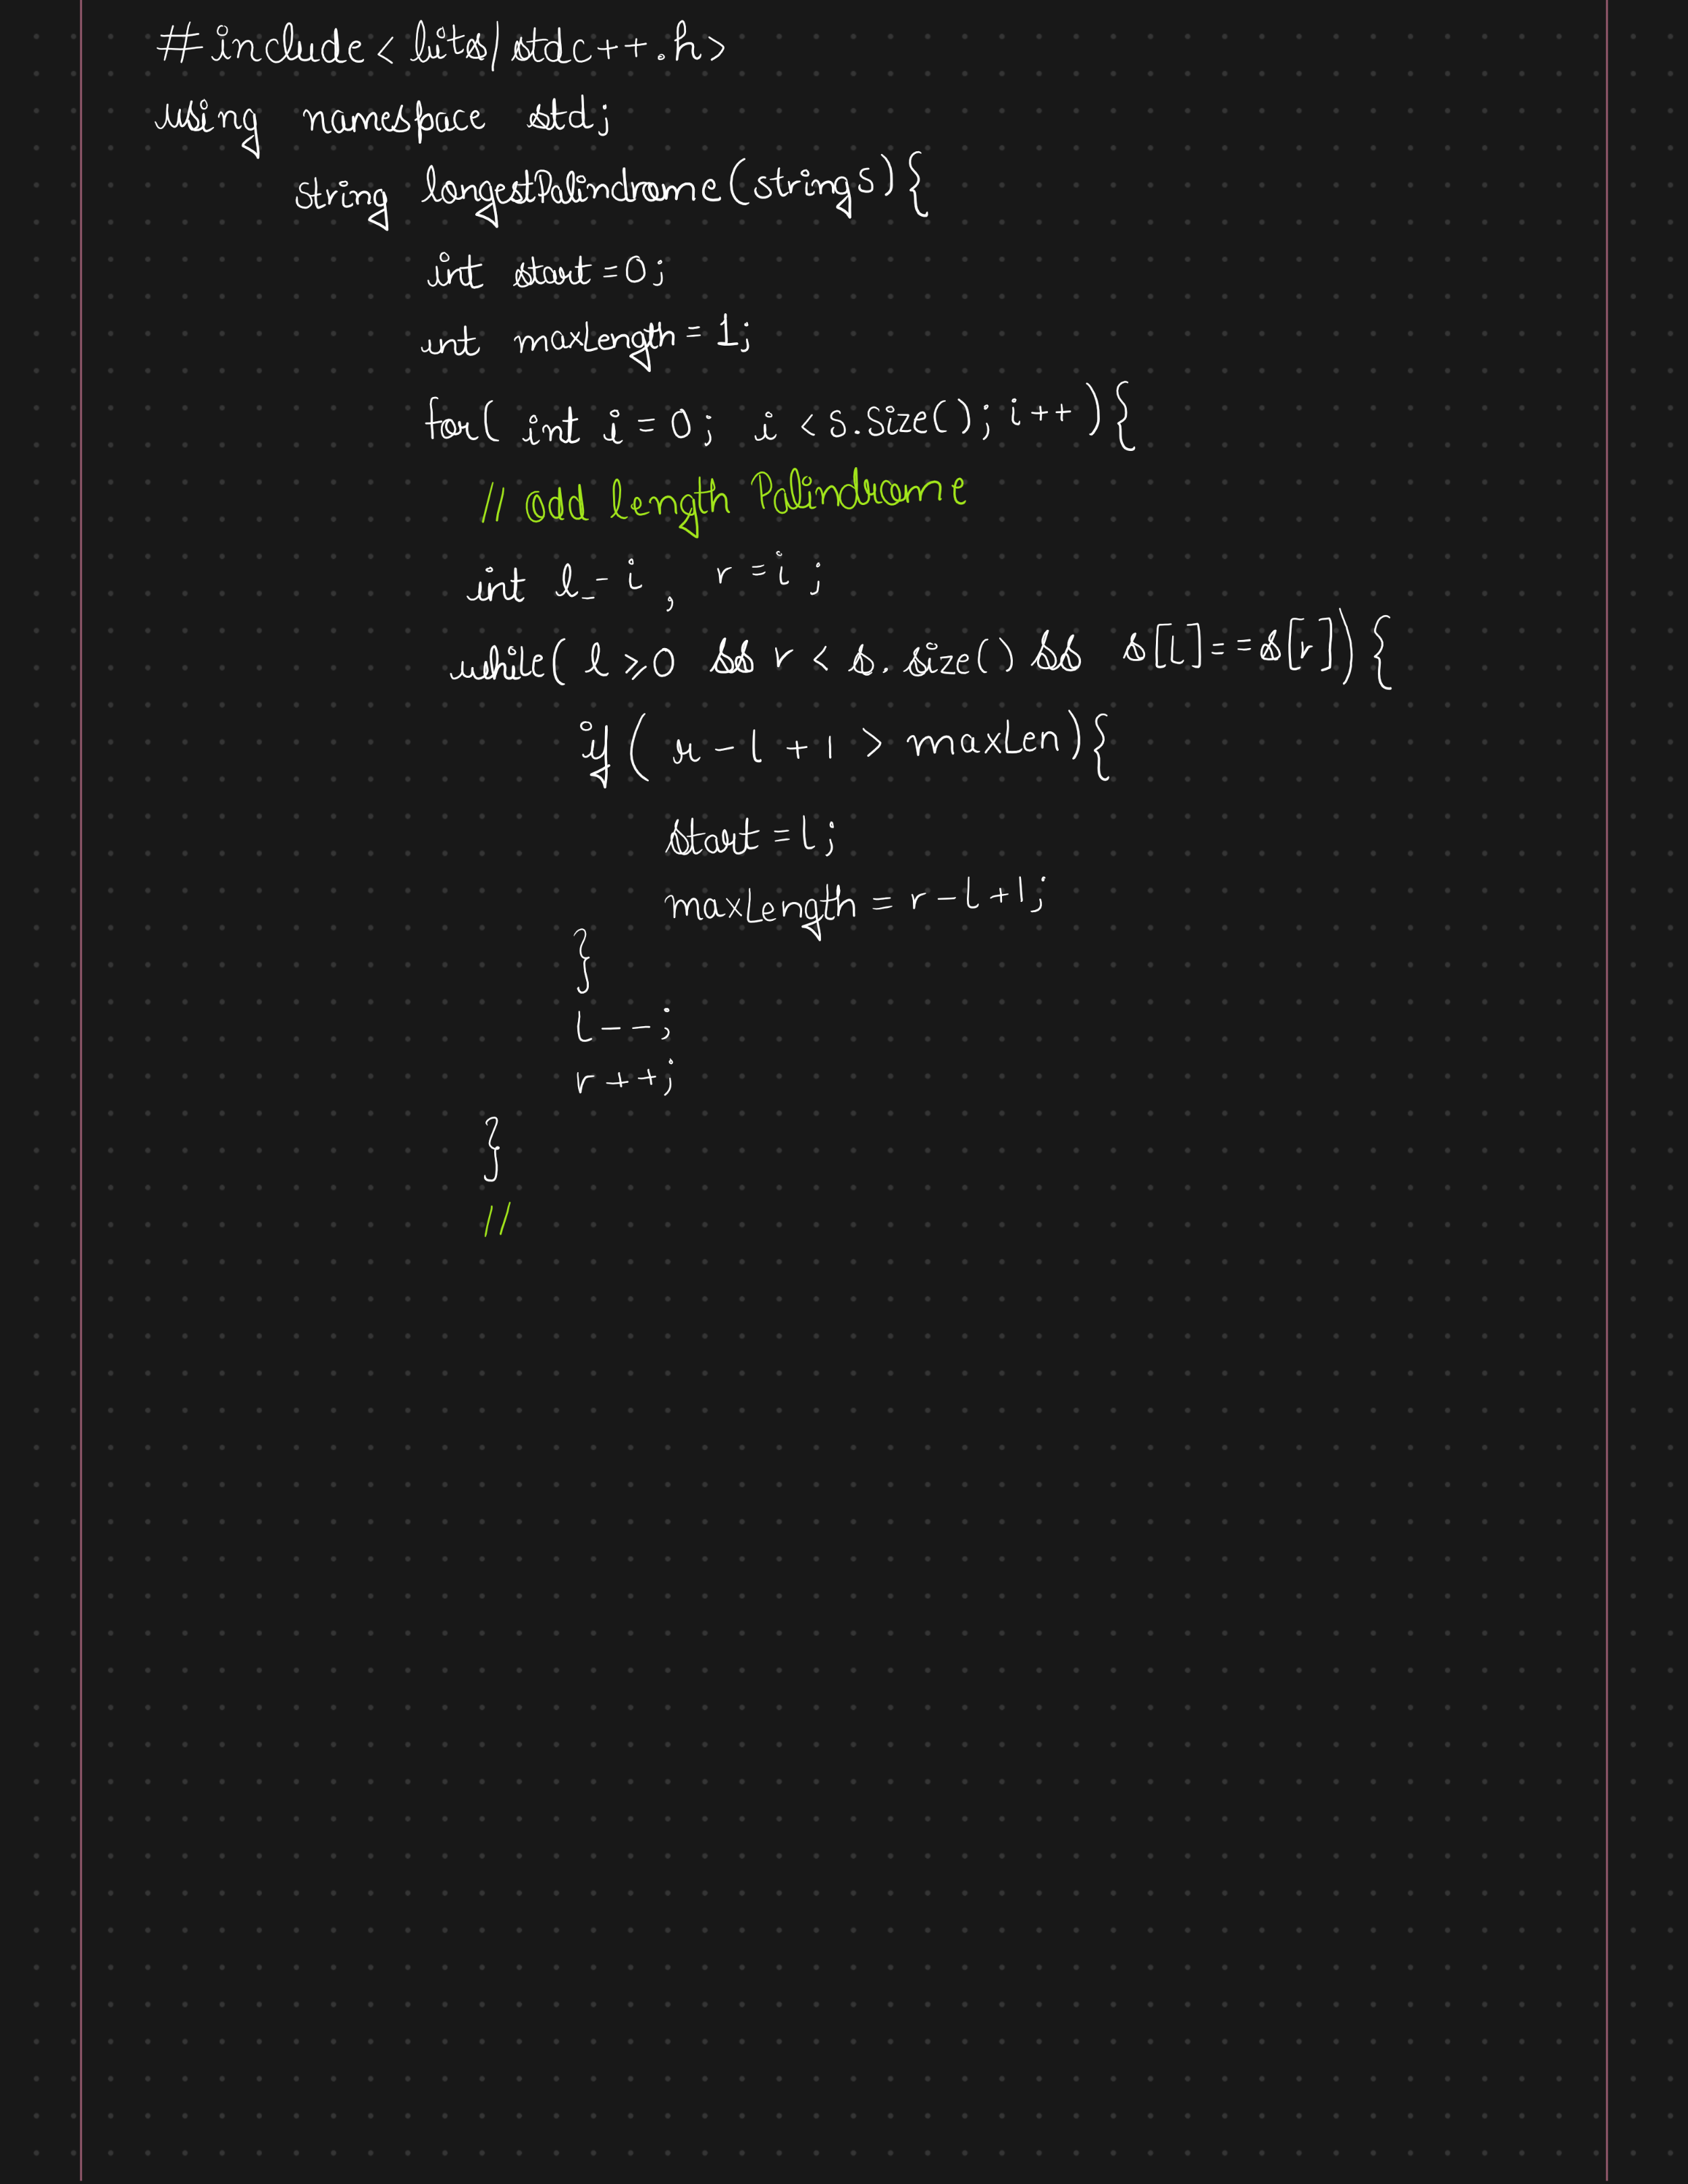 #include<bits/stdc++.h>
using namespace std;
string longestPalindrome(string s){
int start=0;
int maxLength=1;
for( int i=0; i<s.size(); i++){
// odd length Palindrome
int l=i, r=i;
while( l>=0 && r<s.size() && s[l]==s[r]){
if( r-l+1 > maxLen){
start=l;
maxLength=r-l+1;
}
l--;
r++;
}
//